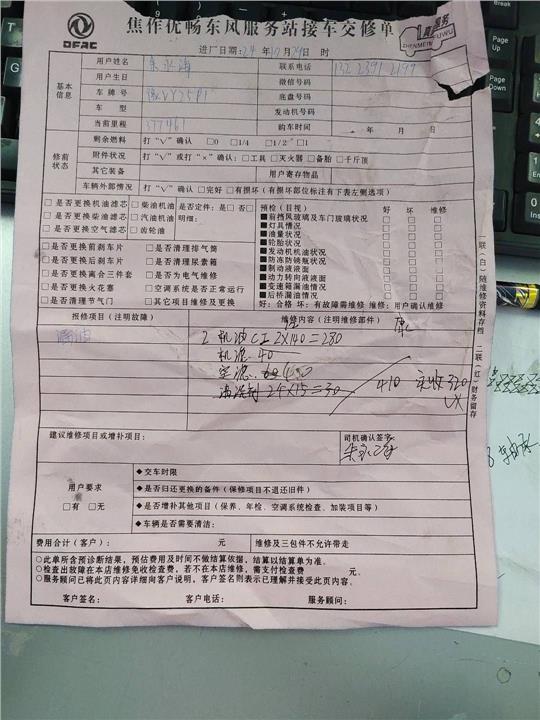 DFAC
焦作优畅东风服务站接车交修单
真服务
ZHENMEIFUWU
进厂日期:24年10月29日 时
基本信息
用户姓名
联系电话
用户生日
微信号码
车牌号
底盘号码
车 型
发动机号码
当前里程 377461
购车时间 年 月 日
修前状态
剩余燃料 打“√”确认 □0 □1/4 □1/2 □1
附件状况 打“√”或打“×”确认:□工具 □灭火器 □备胎 □千斤顶
其它装备
用户寄存物品
车辆外部情况 打“√”确认 □完好 □有损坏(有损坏部位标注有下表左侧选项)
□是否更换机油滤芯 □柴油机油 是否定件:是□ 否□
□是否更换柴油滤芯 □汽油机油 明细:
□是否更换空气滤芯 □齿轮油
□是否更换前刹车片 □是否清理排气筒
□是否更换后刹车片 □是否清理尿素箱
□是否更换离合三件套 □是否为电气维修
□是否更换火花塞 □空调系统是否正常运行
□是否清理节气门 □其它项目维修及更换
预检(目视) 好 坏 维修
■前挡风玻璃及车门玻璃状况 □ □ □
■灯具情况 □ □ □
■油量状况 □ □ □
■轮胎状况 □ □ □
■发动机机油状况 □ □ □
■防冻防锈瓶状况 □ □ □
■制动液液面 □ □ □
■动力转向液液面 □ □ □
■变速箱漏油情况 □ □ □
■后桥漏油情况 □ □ □
好:合格 坏:有故障需维修 维修:用户确认维修
报修项目(注明故障)
维修内容(注明维修部件)
2 机油CI 2X140=280
机滤 40
空滤
清洗剂 2个X15=30
410 实收320
建议维修项目或增补项目:
司机确认签字:
用户要求
□有 □无
◆交车时限
◆是否归还更换的备件(保修项目不退还旧件)
◆是否增补其他项目(保养、年检、空调系统检查、加装项目等)
◆车辆是否需要清洁:
费用合计(客户): 元
维修及三包件不允许带走
○此单所含预诊断结果,预估费用及时间不做结算依据,结算以结算单为准。
○检查出故障在本店维修免收检查费,若不在本店维修,需支付检查费 元。
○服务顾问已将此页内容详细向客户说明,客户签名则表示已理解并接受此页内容。
客户签名: 客户电话: 服务顾问:
一联(白)随维修资料存档
二联(红)财务留存